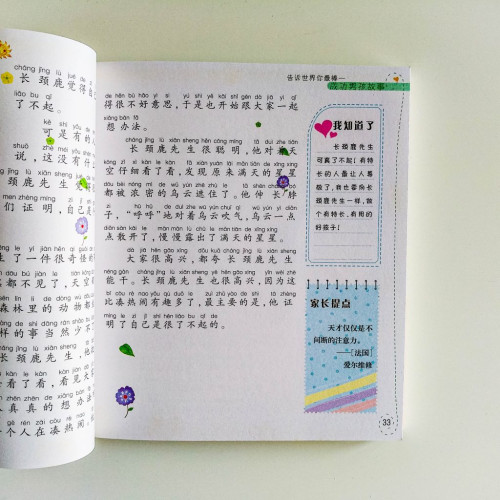 长颈鹿觉得自己
了不起。
可是有的人
说,这没有什
颈鹿先生
们证明,自己是
生了一件很奇怪的
都不见了,天空
森林里的动物都
样的事当然少不
长颈鹿先生,
去看了看,看见大
真真的想办法
个人在凑热闹。
告诉世界你最棒——
成功男孩故事
de hěn bù hǎo yì si yú shì yě kāi shǐ gēn dà jiā yì qǐ
得很不好意思,于是也开始跟大家一起
xiǎng bàn fǎ
想办法。
cháng jǐng lù xiān sheng hěn cōng míng tā duì zhe tiān
长颈鹿先生很聪明,他对着天
kōng zǐ xì kàn le kàn fā xiàn yuán lái mǎn tiān de xīng xing
空仔细看了看,发现原来满天的星星
dōu bèi nóng mì de wū yún zhē zhù le tā shēn cháng bó
都被浓密的乌云遮住了。他伸长脖
zi hū hū de duì zhe wū yún chuī qì wū yún yì diǎn
子,“呼呼”地对着乌云吹气,乌云一点
diǎn sàn kāi le màn màn lù chū le mǎn tiān de xīng xing
点散开了,慢慢露出了满天的星星。
dà jiā hěn gāo xìng dōu kuā cháng jǐng lù xiān sheng
大家很高兴,都夸长颈鹿先生
néng gàn cháng jǐng lù xiān sheng yě hěn gāo xìng yīn wèi zhè
能干。长颈鹿先生也很高兴,因为这
bǐ còu rè nao yǒu qù duō le zuì zhǔ yào de shì tā zhèng
比凑热闹有趣多了,最主要的是,他证
míng le zì jǐ shì hěn liǎo bu qǐ de
明了自己是很了不起的。
我知道了
长颈鹿先生
可真了不起!有特
长的人最让人尊
敬了,我也要向长
颈鹿先生一样,做
个有特长、有用的
好孩子!
家长提点
天才仅仅是不
间断的注意力。
——「法国」
爱尔维修
33